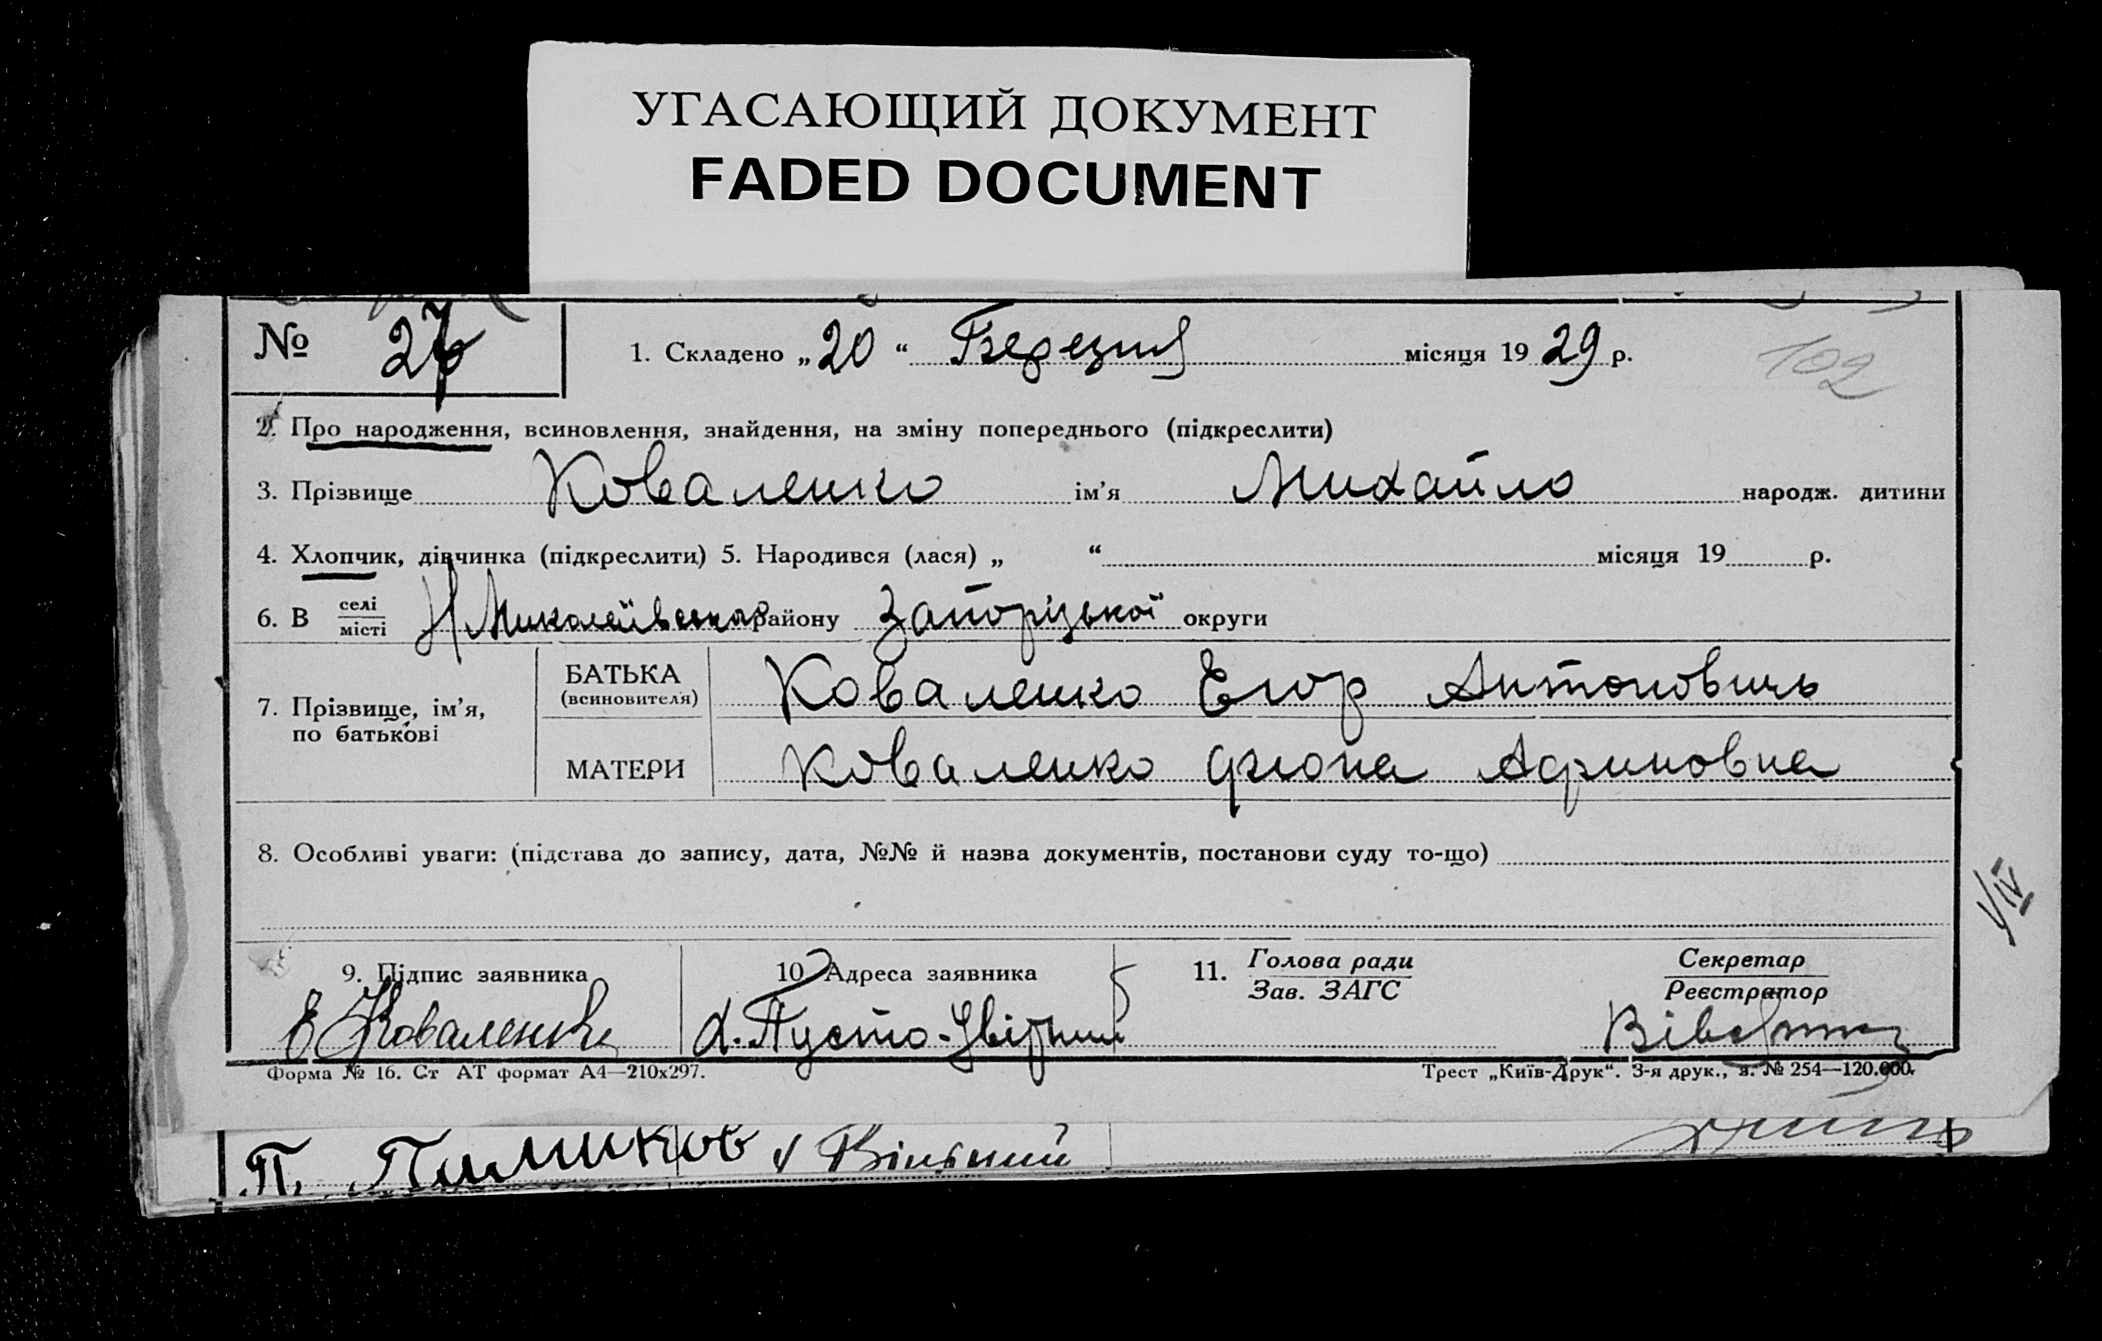 УГАСАЮЩИЙ ДОКУМЕНТ
FADED DOCUMENT
№ 1. Складено „20“ Березня місяця 1929 р. 102
2. Про народження, всиновлення, знайдення, на зміну попереднього (підкреслити)
3. Прізвище Коваленко ім’я Михайло народж. дитини
4. Хлопчик, дівчинка (підкреслити) 5. Народився (лася) „ “ місяця 19 р.
6. В селі
місті
району Запорізької округи
7. Прізвище, ім’я,
по батькові
БАТЬКА
(всиновителя)
Коваленко Егор Антоновичь
МАТЕРИ Коваленко
8. Особливі уваги: (підстава до запису, дата, №№ й назва документів, постанови суду то-що)
9. Підпис заявника
Е Коваленко
10 Адреса заявника
11. Голова ради
Зав. ЗАГС
Секретар
Реєстратор
Форма № 16. Ст АТ формат А4—210х297.
Трест „Київ-Друк“. 3-я друк., з. № 254—120.000.
П.